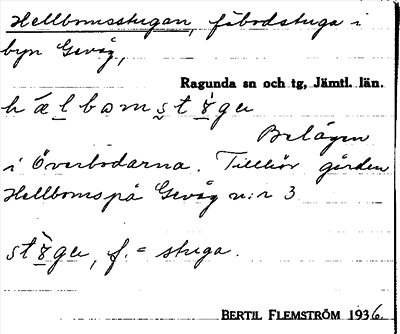 Hellbomsstugan, fäbodstuga i
byn Gevåg,
Ragunda sn och tg, Jämtl. län.
hælbomst
Belägen
i Överbodarna. Tillhör gården
Hellboms på Gevåg n:r 3
f. = stuga.
BERTIL FLEMSTRÖM 1936.